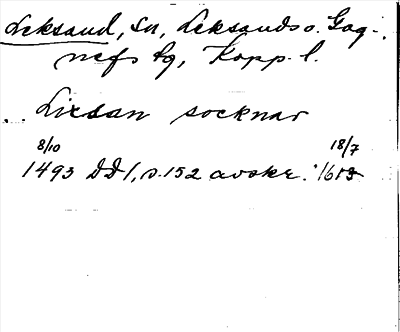 Leksand, sn, Leksands o. Gag-
nefs tg, Kopp. l.
Lixsan socknar
8/10 18/7
1493 DD 1, s. 152 avskr. 1613